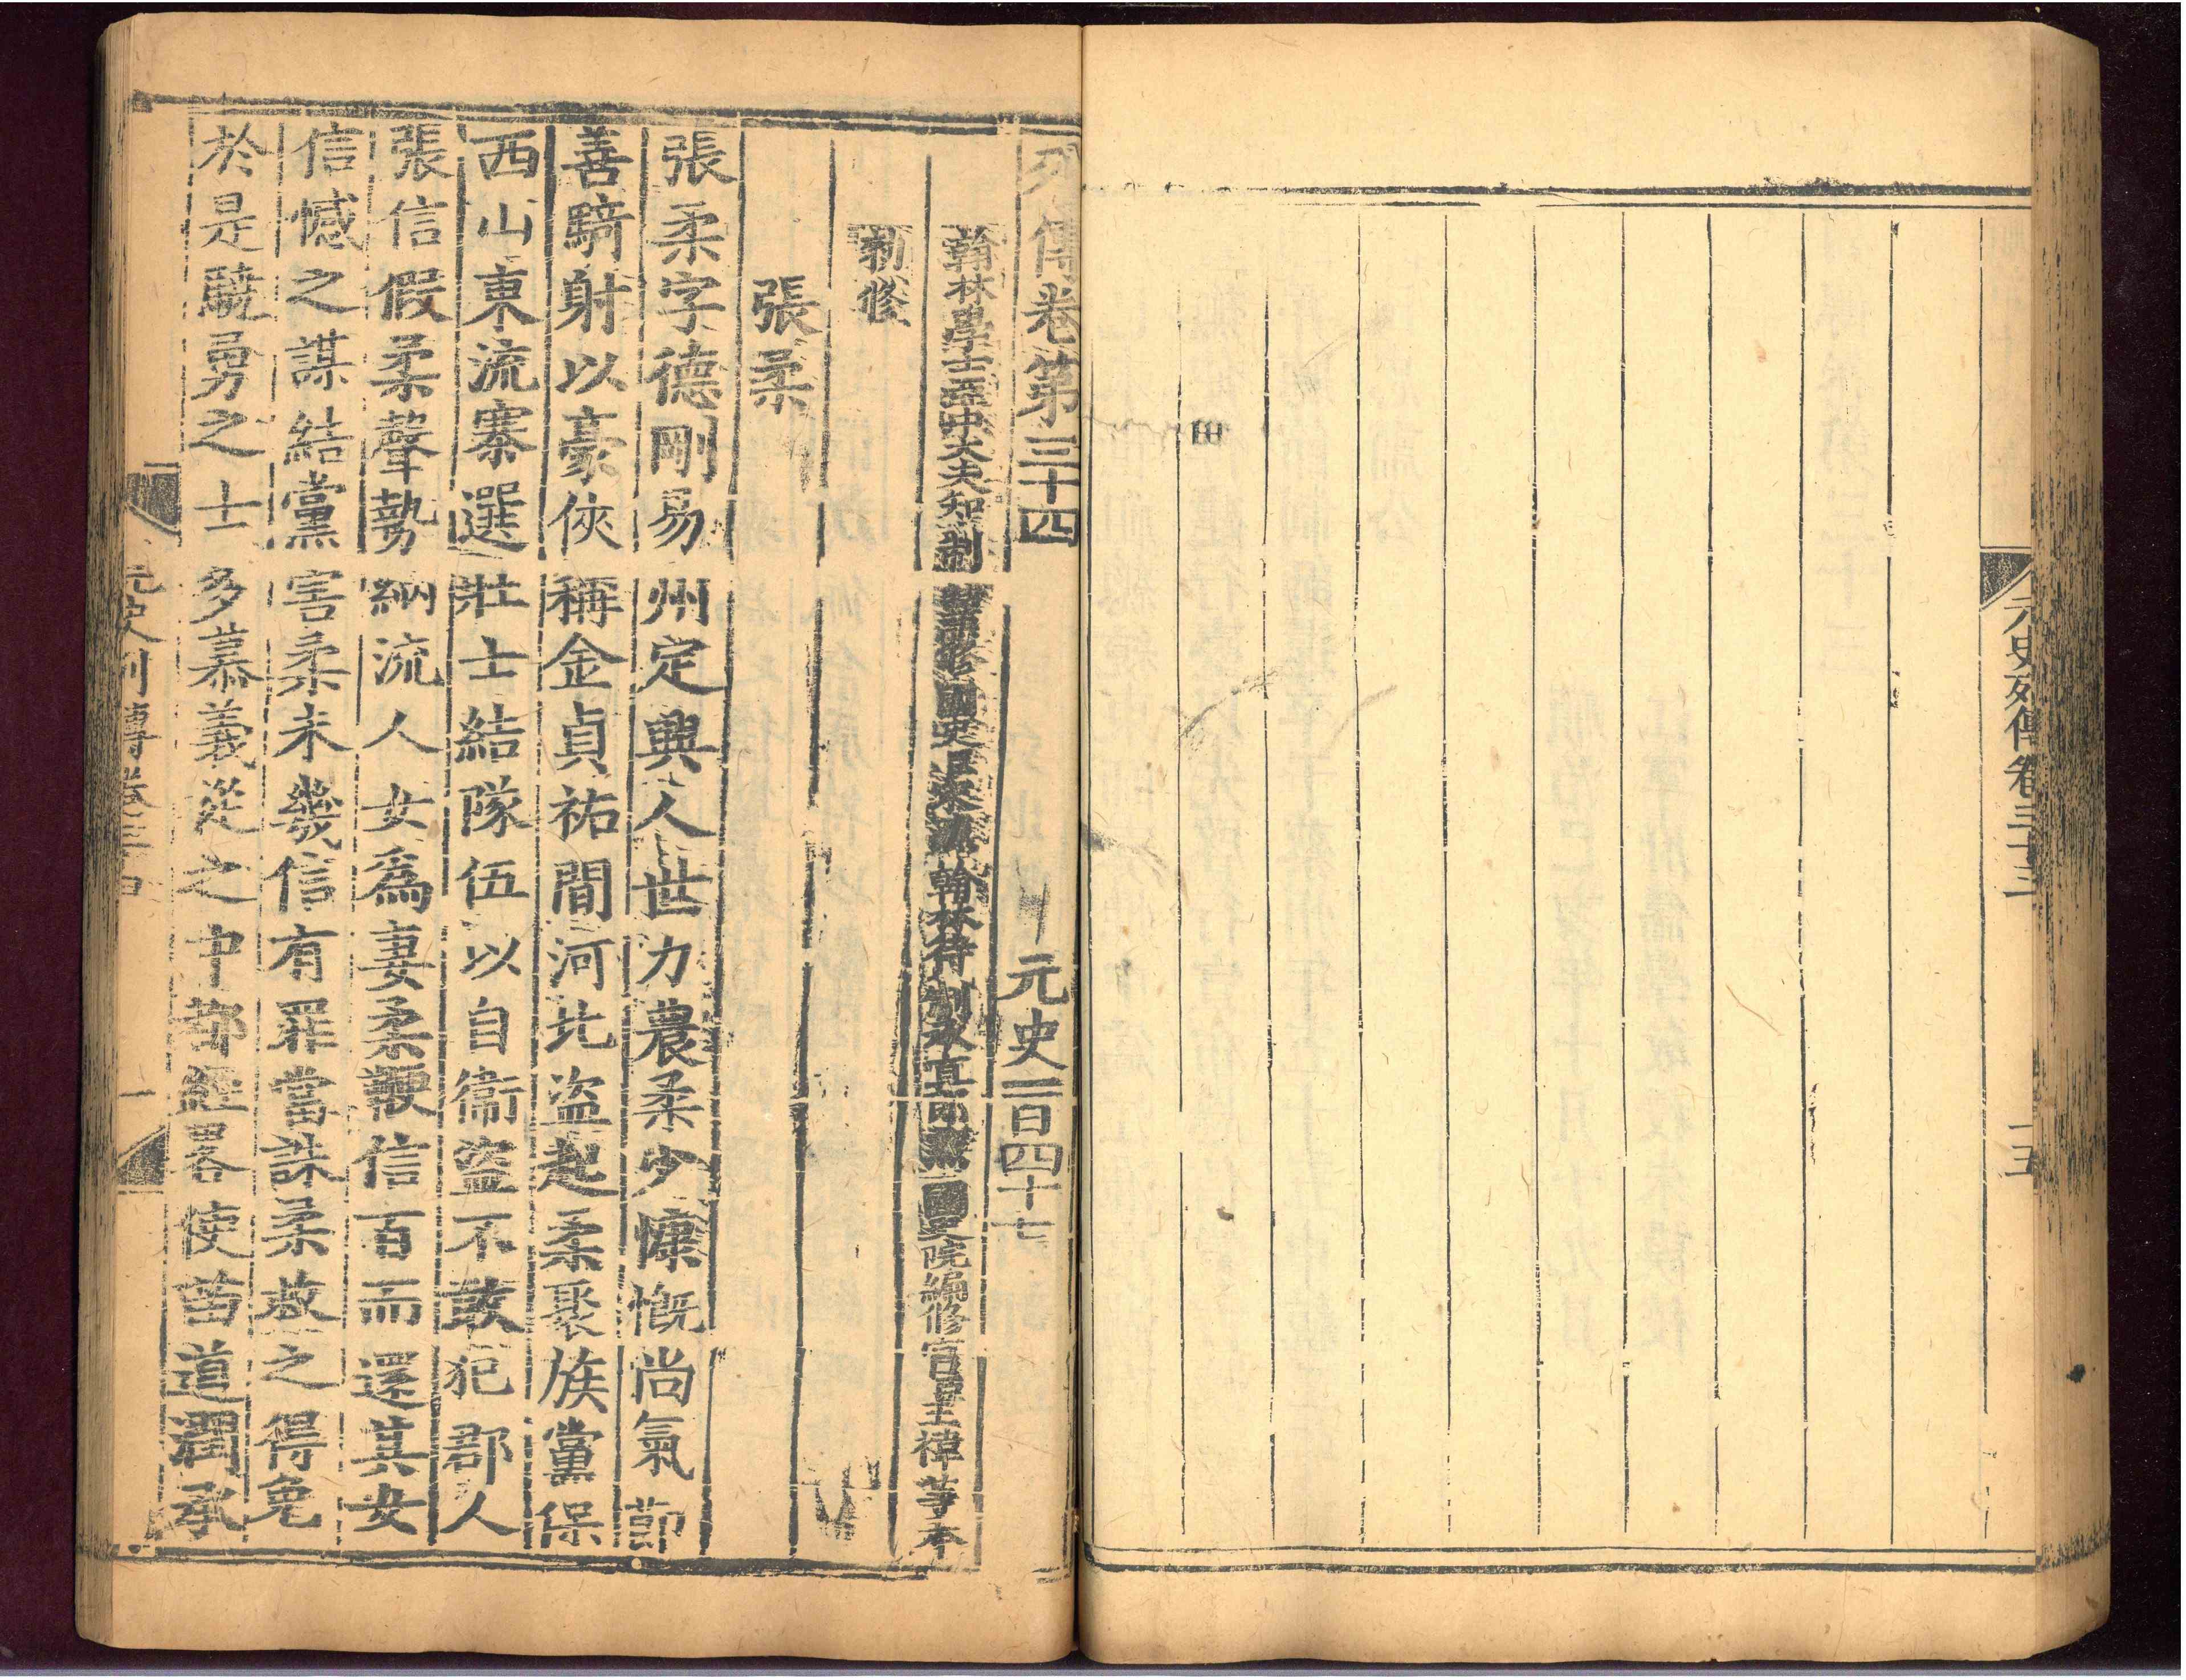 元史列傳卷三十三
十五
列傳卷第三十四 元史一百四十七
翰林學士亞中大夫知制誥兼修國史臣宋濂翰林待制承直郎兼國史院編修官臣王禕等奉
勅修
張柔
張柔字德剛易州定興人世力農柔少慷慨尚氣節
善騎射以豪俠稱金貞祐間河北盜起柔聚族黨保
西山東流寨選壯士結隊伍以自衞盜不敢犯郡人
張信假柔聲勢納流人女爲妻柔鞭信百而還其女
信憾之謀結黨害柔未幾信有罪當誅柔救之得免
於是驍勇之士多慕義從之中都經畧使苗道潤承
元史列傳卷三十四
一